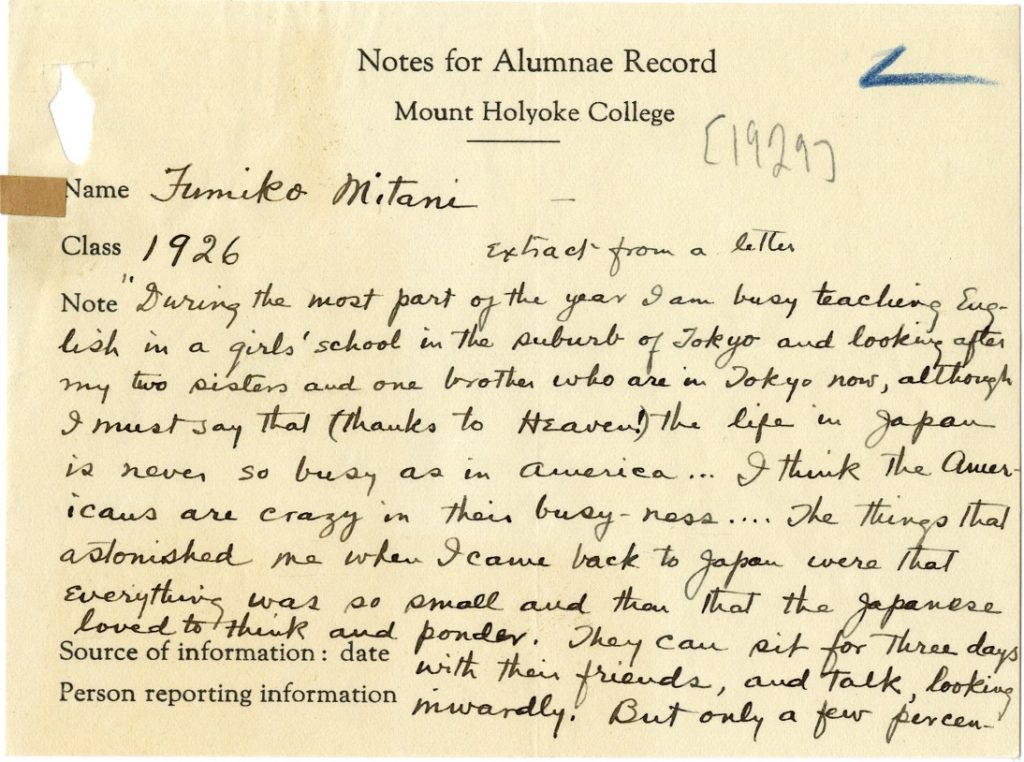 Notes for Alumnae Record
Mount Holyoke College
[1929]
Name Fumiko Mitani
Class 1926 Extract from a letter
Note "During the most part of the year I am busy teaching Eng-
lish in a girls' school in the suburb of Tokyo and looking after
my two sisters and one brother who are in Tokyo now, although
I must say that (thanks to Heaven!) the life in Japan
is never so busy as in America... I think the Amer-
icans are crazy in their busy-ness.... The things that
astonished me when I came back to Japan were that
everything was so small and then that the Japanese
loved to think and ponder. They can sit for three days
Source of information: date with their friends, and talk, looking
Person reporting information inwardly. But only a few percen-